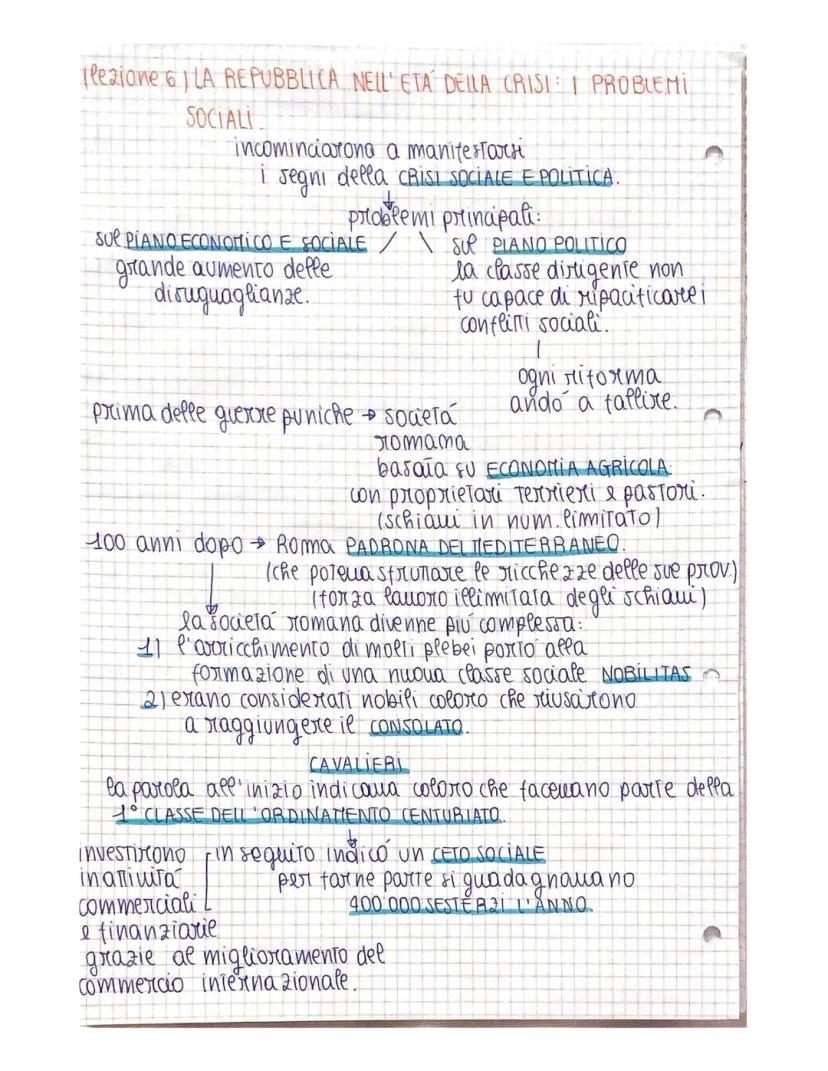 (lezione 6) LA REPUBBLICA NELL'ETÁ DELLA CRISI: I PROBLEMI
SOCIALI.
incominciarono a manifestarsi
i segni della CRISI SOCIALE E POLITICA.
↓
problemi principali:
sul PIANO ECONOMICO E SOCIALE / \ sul PIANO POLITICO
grande aumento delle
disuguaglianze.
la classe dirigente non
fu capace di ripacificare i
conflitti sociali.
|
ogni riforma
andó a fallire.
prima delle guerre puniche → societá
romana
basata su ECONOMIA AGRICOLA.
con proprietari terrieri e pastori.
(schiavi in num. limitato)
100 anni dopo → Roma PADRONA DEL MEDITERRANEO.
(che poteva sfruttare le ricchezze delle sue prov.)
(forza lavoro illimitata degli schiavi)
la societá romana divenne piú complessa:
1) l'arricchimento di molti plebei portó alla
formazione di una nuova classe sociale NOBILITAS
2) erano considerati nobili coloro che riusarono
a raggiungere il CONSOLATO.
CAVALIERI
la parola all'inizio indicava coloro che facevano parte della
1° CLASSE DELL'ORDINAMENTO CENTURIATO.
↓
in seguito indicó un CETO SOCIALE
per farne parte si guadagnavano
400 000 SESTERZI L'ANNO.
investirono
in attivitá
commerciali
e finanziarie
grazie al miglioramento del
commercio internazionale.